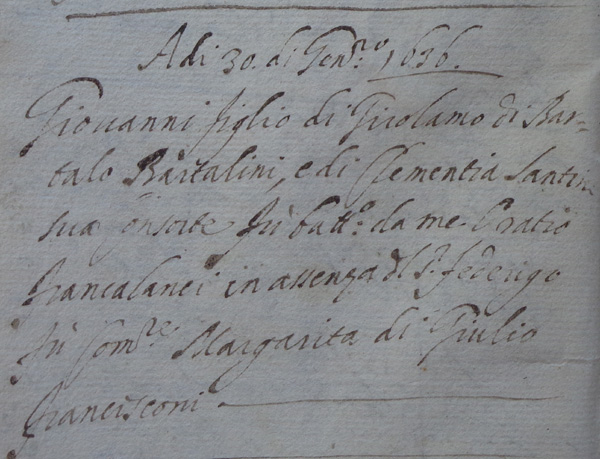 Adi 30. di Gen.ro 1636.
Giovanni figlio di Girolamo di Bar-
talo Bartalini, e di Clementia Santini
sua Consorte fù batt.o da me Oratio
francalanci in assenza del S.r federigo
fù Com.re Margarita di Giulio
francesconi